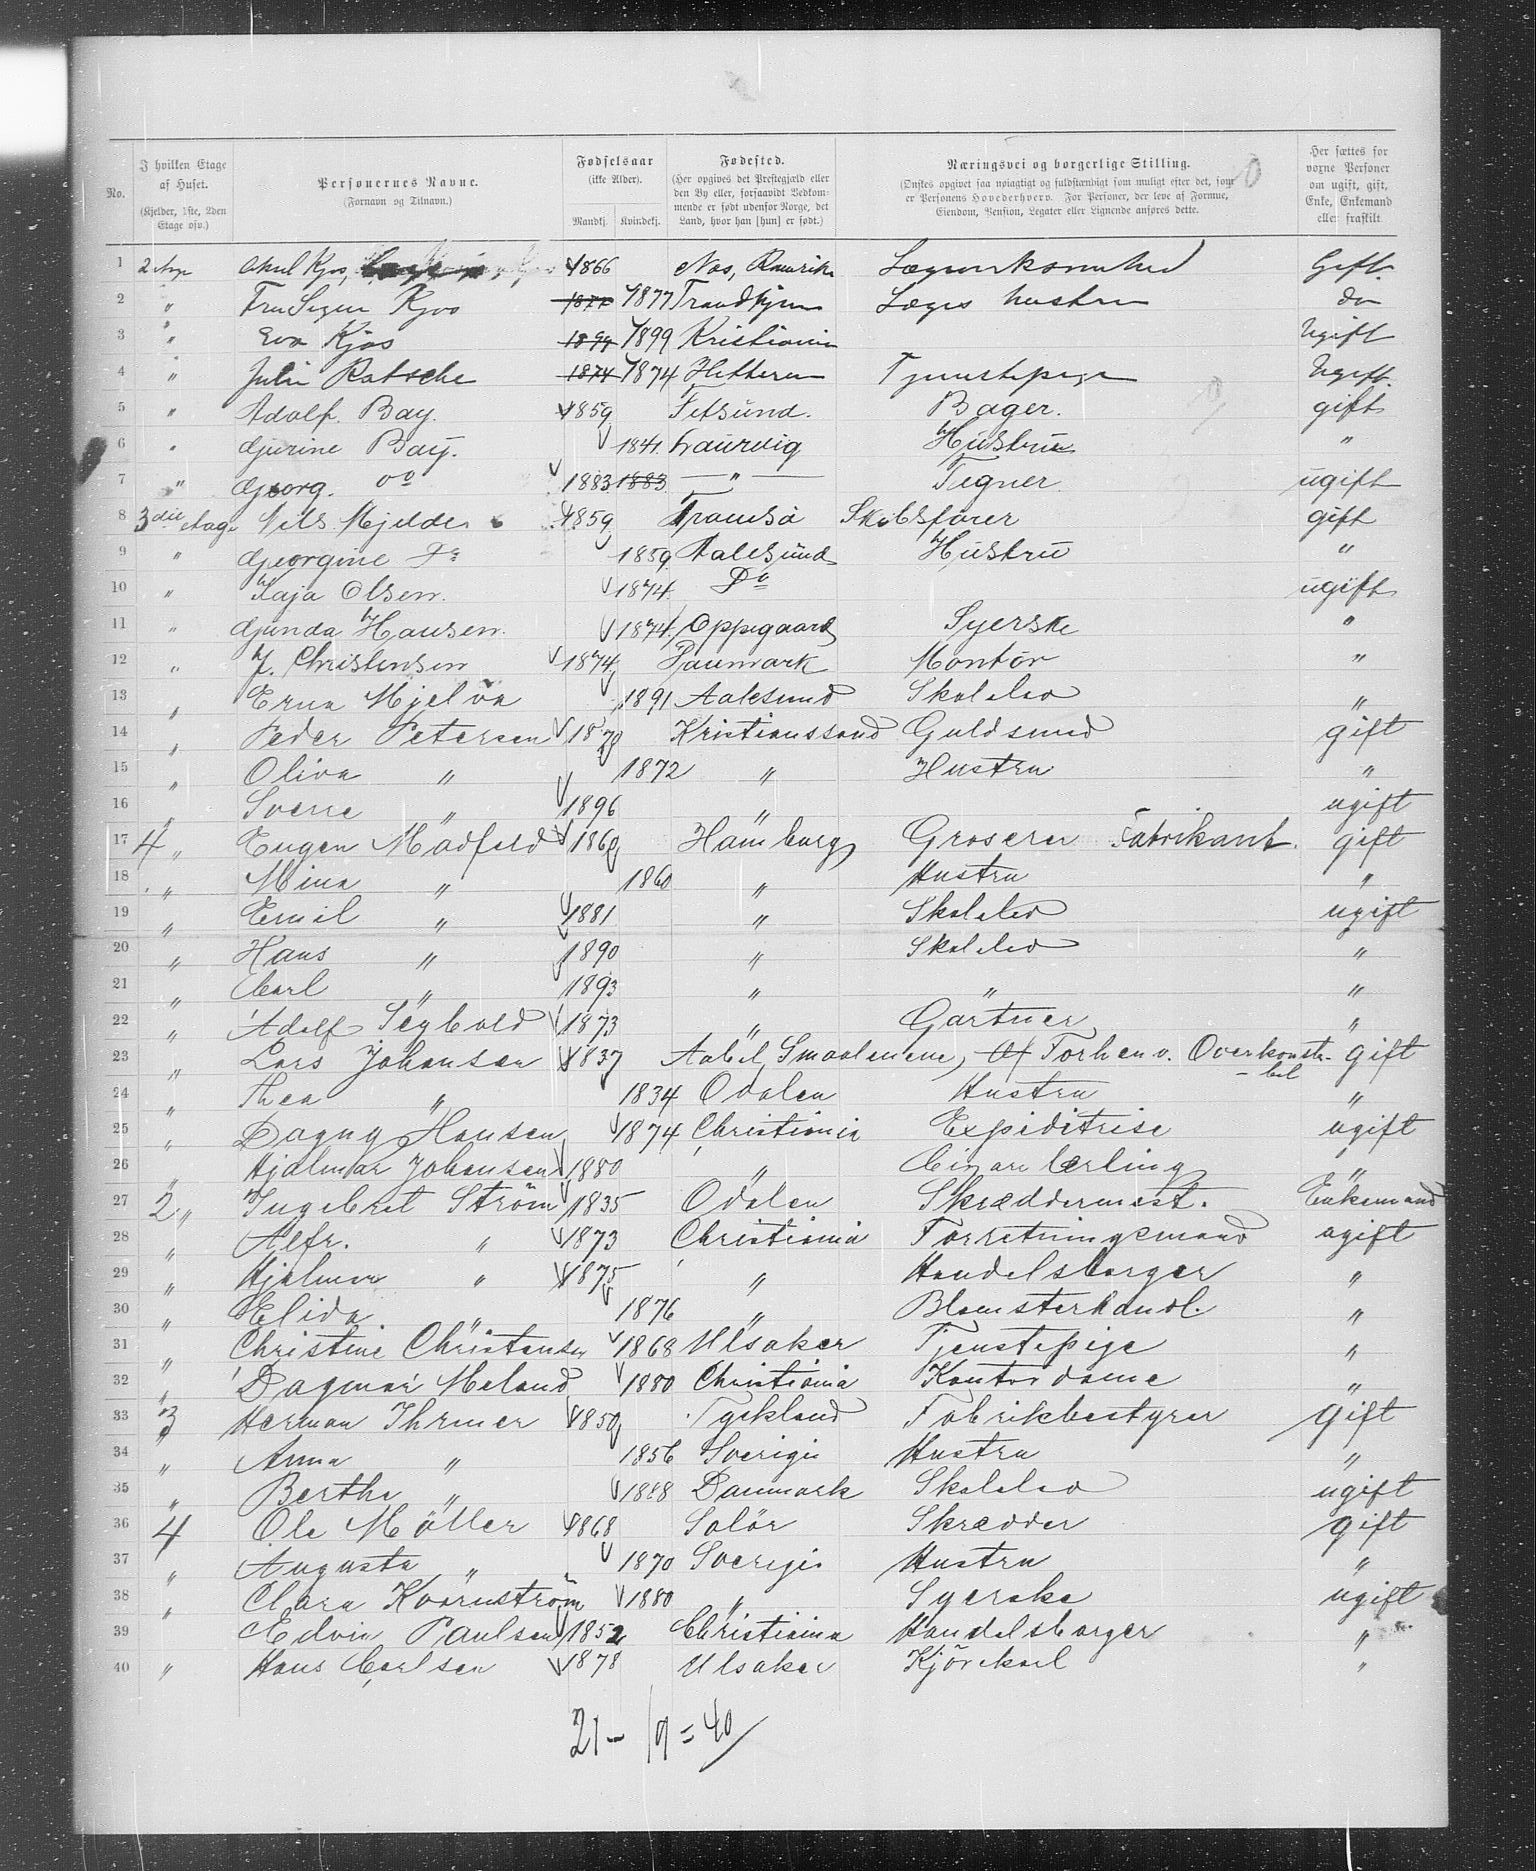 No.
I hvilken Etage af Huset.
(Kjelder, 1ste, 2den Etage osv.)
Personernes Navne.
(Fornavn og Tilnavn.)
Fødselsaar
(ikke Alder).
Mandkj. Kvindekj.
Fødested.
(Her opgives det Prestegjæld eller den By eller, forsaavidt Vedkommende er født udenfor Norge, det Land, hvor han [hun] er født.)
Næringsvei og borgerlige Stilling.
(Ønskes opgivet saa nøiagtigt og fuldstændigt som muligt efter det, som er Personens Hovederhverv. For Personer, der leve af Formue, Eiendom, Pension, Legater eller Lignende anføres dette.
Her sættes for voxne Personer om ugift, gift, Enke, Enkemand eller fraskilt
1 2 Axel Kjos, 1866 Nes, Romerike Lægevirksomhed Gift
2 " Fru Kjos 1877 1877 Trondhjem Læges hustru do
3 " Eva Kjos 1899 1899 Kristiania Ugift
4 " Julie 1874 1874 Hitteren Tjenestepige Ugift
5 " Adolf Bay. 1859 Fetsund. Bager. gift
6 " Gjurine Bay. 1841. Laurvig Hustru "
7 " Georg. do 1883 1883 — " — Tegner ugift
8 3die etage Nils Mjelde 1859 Tromsø Skibsfører gift
9 " Georgine Do 1859 Aalesund Hustru "
10 " Kaja Olsen. 1874. Do ugift
11 " Gjunda Hansen. 1874. Oppegaard Syerske "
12 " J. Christensen 1874 Danmark Montør "
13 " Erna Mjelva 1891 Aalesund Skoleelev "
14 " Peder Petersen 1870 Kristianssand Guldsmed gift
15 " Oliva " 1872 " Hustru "
16 " Sverre " 1896 " ugift
17 4 " Eugen Mädfeld 1860 Hamburg Groserer Fabrikant. gift
18 " Mina " 1860 " Hustru "
19 " Emil " 1881 " Skoleelev ugift
20 " Hans " 1890 " Skoleelev "
21 " Carl " 1893 " " "
22 " Adolf Segbold 1873 " Gartner "
23 " Lars Johansen 1837 Aabel, Smaalenene, Af Forhenv. Overkonstabel gift
24 " Thea " 1834 Odalen Hustru "
25 " Dagny Hansen 1874 Christiania Expiditrise ugift
26 " Hjalmar Johansen 1880 " Cigarlærling "
27 2 " Ingebret Ström 1835 Odalen Skræddermest. Enkemand
28 " Alfr. " 1873 Christiania Forretningsmand ugift
29 " Hjalmar " 1875 " Handelsborger "
30 " Elida " 1876 " Blomsterhandl. "
31 " Christine Christensen 1868 Ulsaker Tjenstepige "
32 " Dagmar Meland 1880 Christiania Kontordame "
33 3 Herman Ihrner 1850 Tyskland Fabrikbestyrer gift
34 " Anna " 1856 Sverige Hustru "
35 " Berthe " 1888 Danmark Skoleelev ugift
36 4 Ole Möller 1868 Solör Skrædder gift
37 " Augusta " 1870 Sverige Hustru "
38 " Clara Kvarnström 1880 " Syerske ugift
39 Edvin Paulsen 1852 Christiania Handelsborger "
40 " Hans Carlsen 1878 Ulsaker Kjörekarl "
21 – 19 = 40